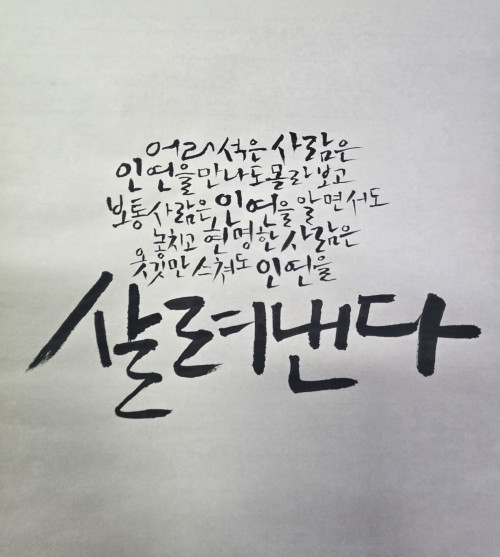 어리석은 사람은
인연을 만나도 몰라보고
보통 사람은 인연을 알면서도
놓치고 현명한 사람은
옷깃만 스쳐도 인연을
살려낸다